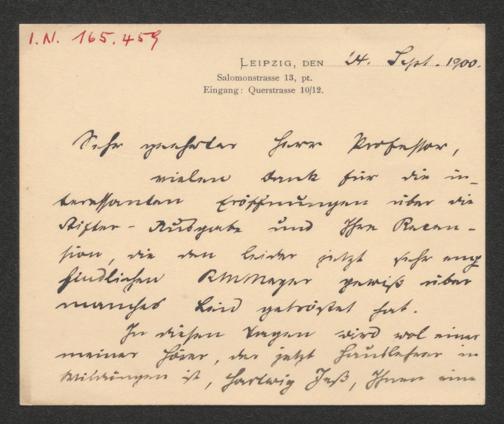 I.N. 165.459
LEIPZIG, DEN 24. Sept. 1900.
Salomonstrasse 13, pt.
Eingang: Querstrasse 10/12.
Sehr geehrter Herr Professor,
vielen Dank für die in-
teressanten Eröffnungen über die
Stifter-Ausgabe und Ihre Recen-
sion, die den leider jetzt sehr emp
findlichen RMMeyer gewiß über
manches Leid getröstet hat.
In diesen Tagen wird wol einer
meiner Hörer, der jetzt Hauslehrer in
Wildungen ist, Hartwig Jeß, Ihnen eine